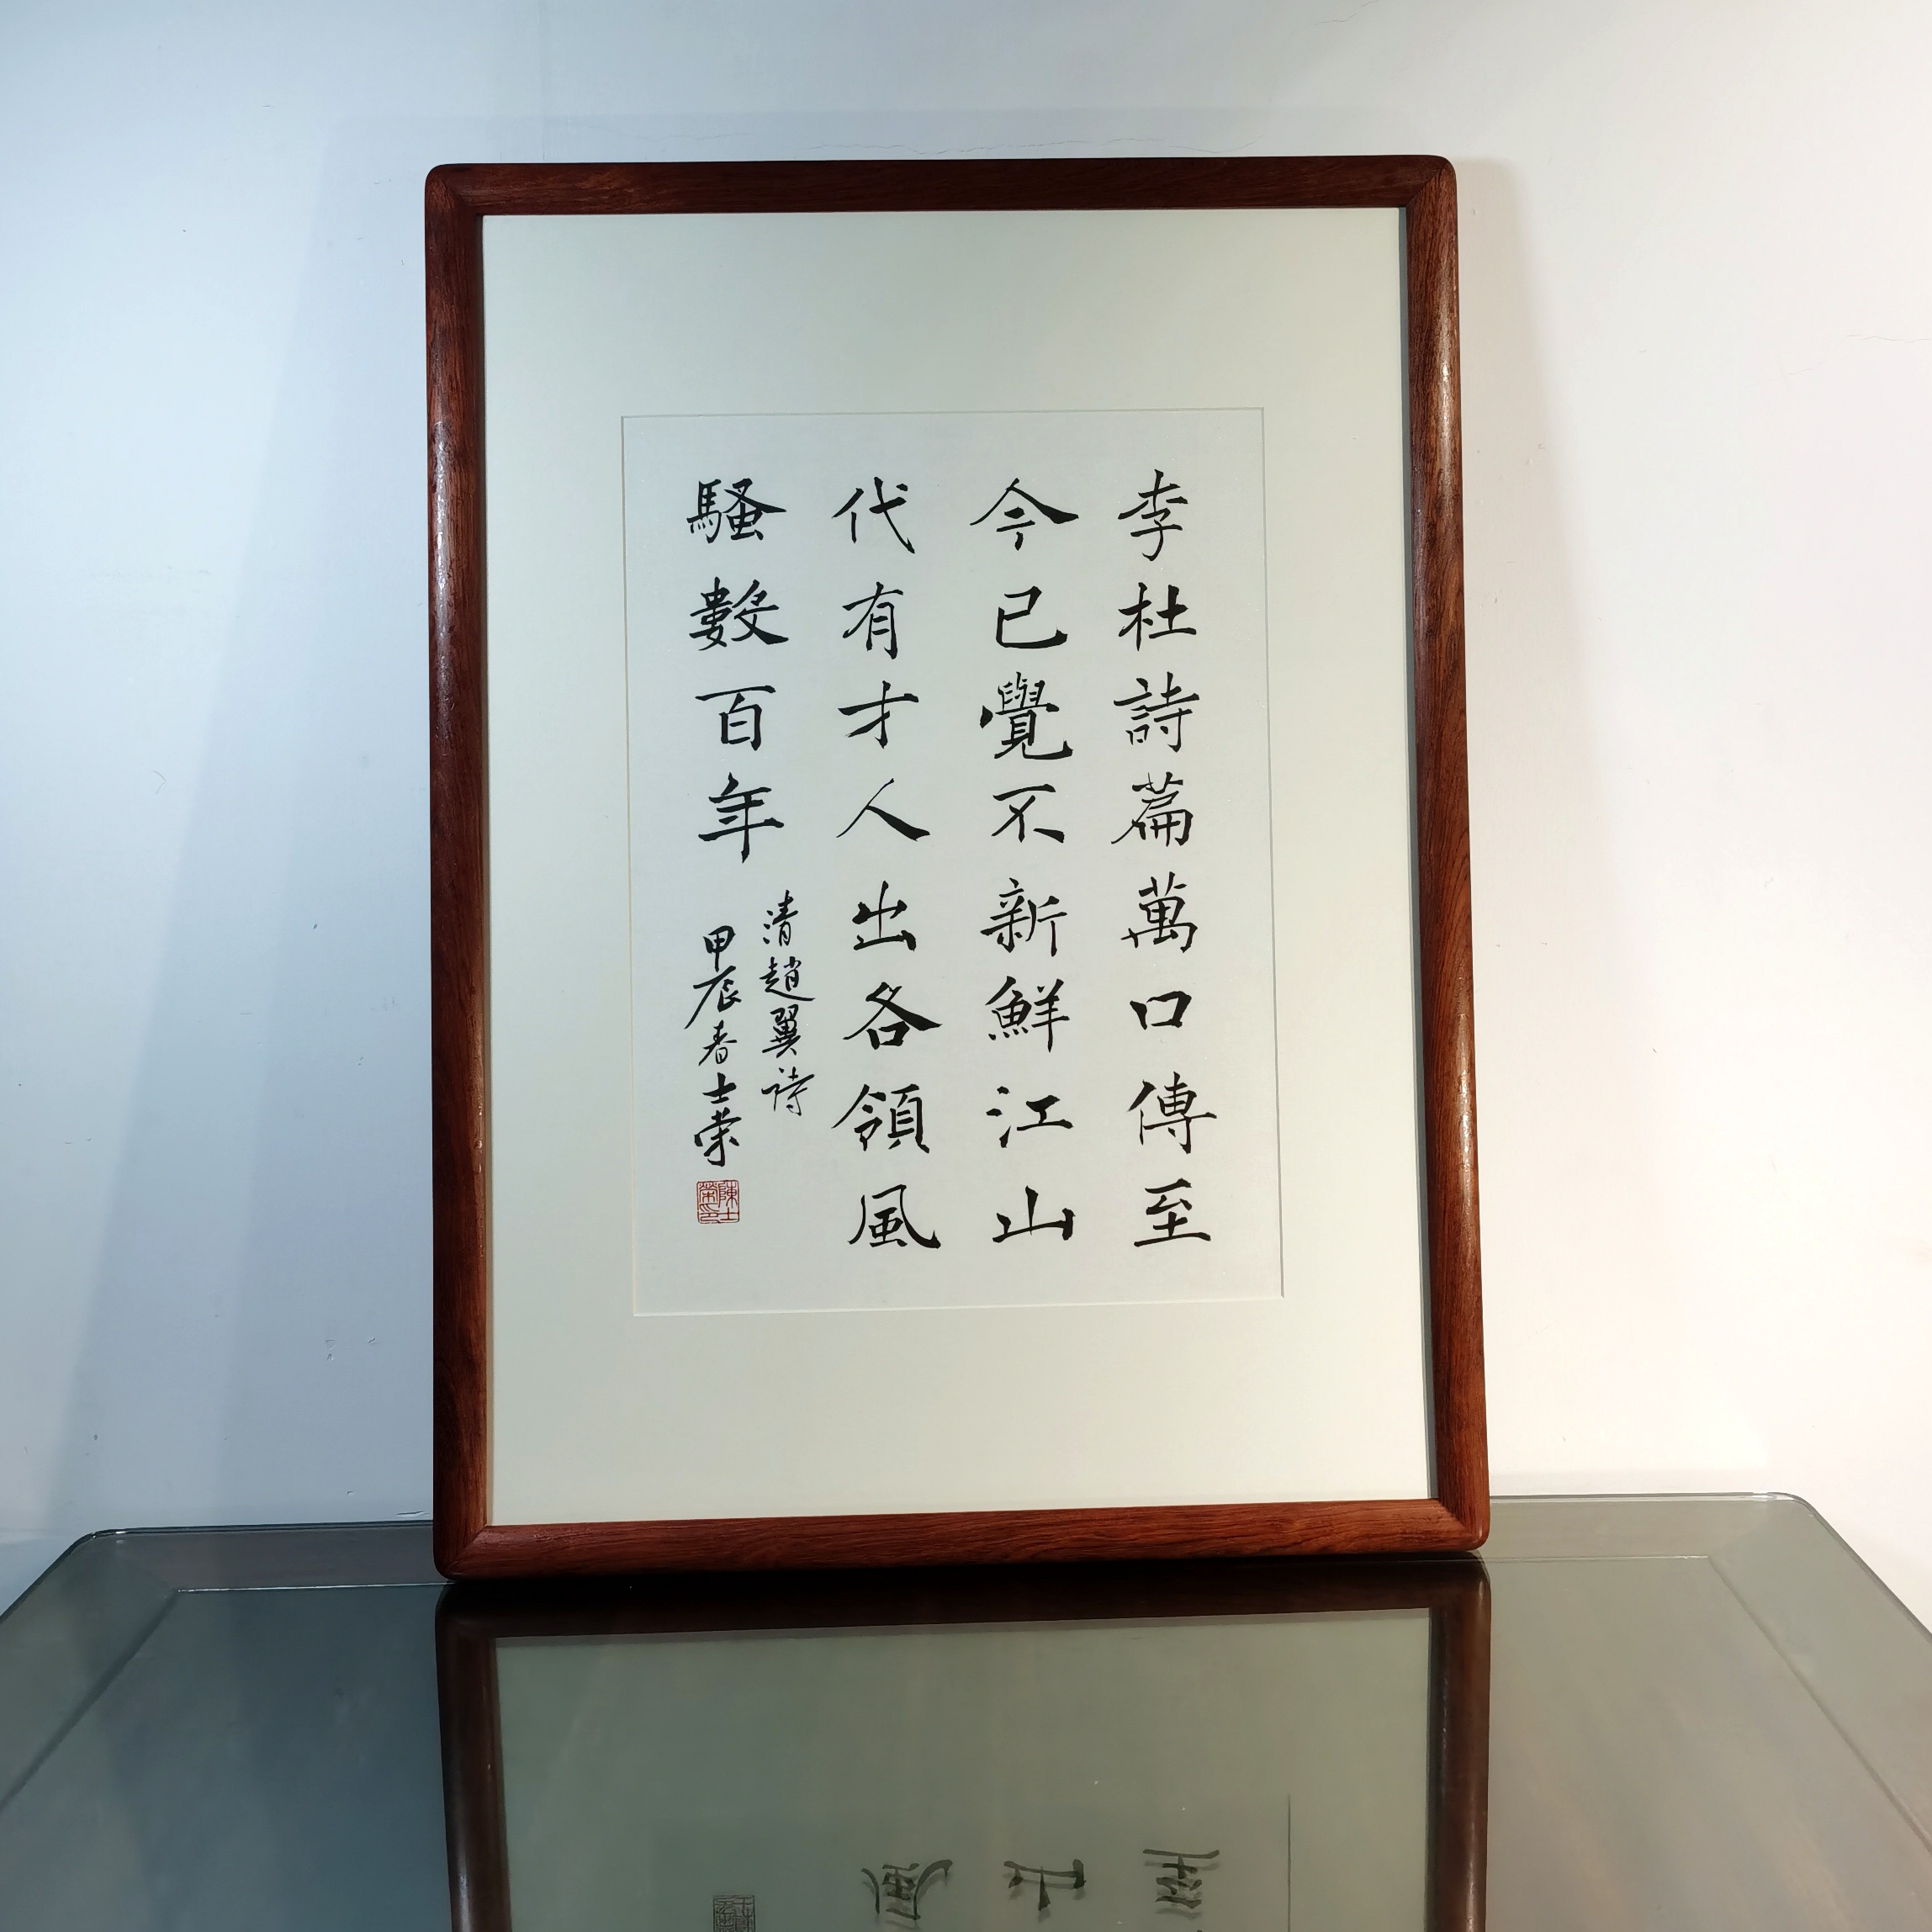 李杜詩篇萬口傳至
今已覺不新鮮江山
代有才人出各領風
騷數百年
清趙翼詩
甲辰春士荣
陳士榮印